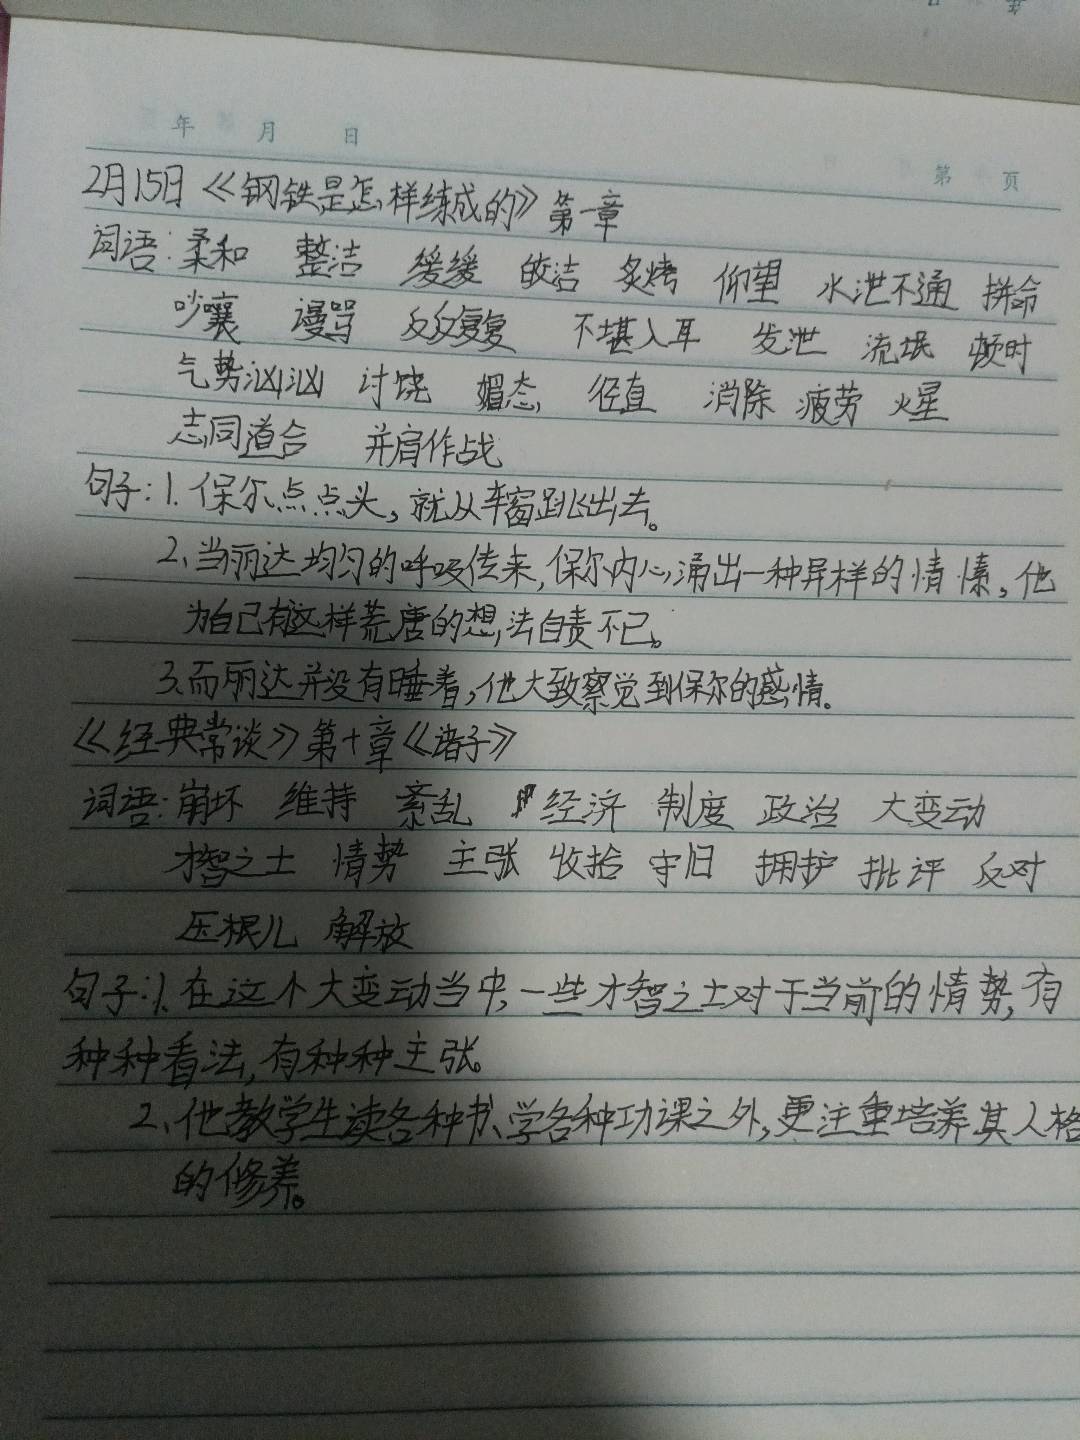 年 月 日
第 页
2月15日《钢铁是怎样练成的》第一章
词语:柔和 整洁 缓缓 皎洁 炙烤 仰望 水泄不通 拼命
吵嚷 谩骂 反反复复 不堪入耳 发泄 流氓 顿时
气势汹汹 讨饶 媚态 径直 消除 疲劳 火星
志同道合 并肩作战
句子:1.保尔点点头,就从车窗跳出去。
2、当丽达均匀的呼吸传来,保尔内心涌出一种异样的情愫。他
为自己有这样荒唐的想法自责不已。
3.而丽达并没有睡着,他大致察觉到保尔的感情。
《经典常谈》第十章《诸子》
词语:崩坏 维持 紊乱 经济 制度 政治 大变动
才智之士 情势 主张 收拾 守旧 拥护 批评 反对
压根儿 解放
句子:1.在这个大变动当中,一些才智之士对于当前的情势,有
种种看法,有种种主张。
2、他教学生读各种书、学各种功课之外,更注重培养其人格
的修养。